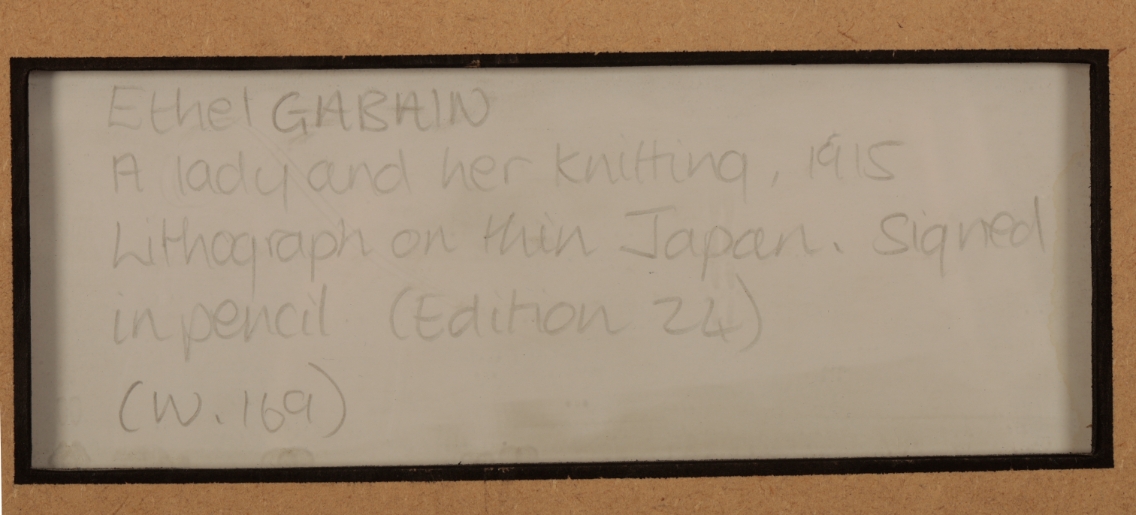 Ethel GABAIN
A lady and her knitting, 1915
Lithograph on thin Japan. Signed
in pencil (Edition 24)
(W.169)